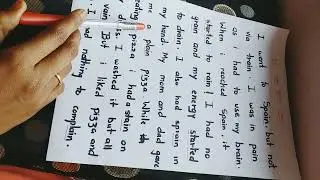 I went to Spain but not
via train I was in pain
as i had to use my brain.
When i reached spain it
started to rain! I had no
grain and my energy started
to drain. I also had sprain in
my hand. My mom and dad gave
me a plain pizza While
eating pizza i had a stain on
I washed it but all
vain But i liked pizza and
I had nothing to complain.